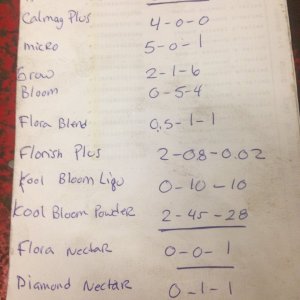 Calmag Plus 4-0-0
micro 5-0-1
Grow 2-1-6
Bloom 0-5-4
Flora Blend 0.5-1-1
Florish Plus 2-08-0.02
Kool Bloom Liqu 0-10-10
Kool Bloom Powder 2-45-28
Flora Nectar 0-0-1
Diamond Nectar 0-1-1